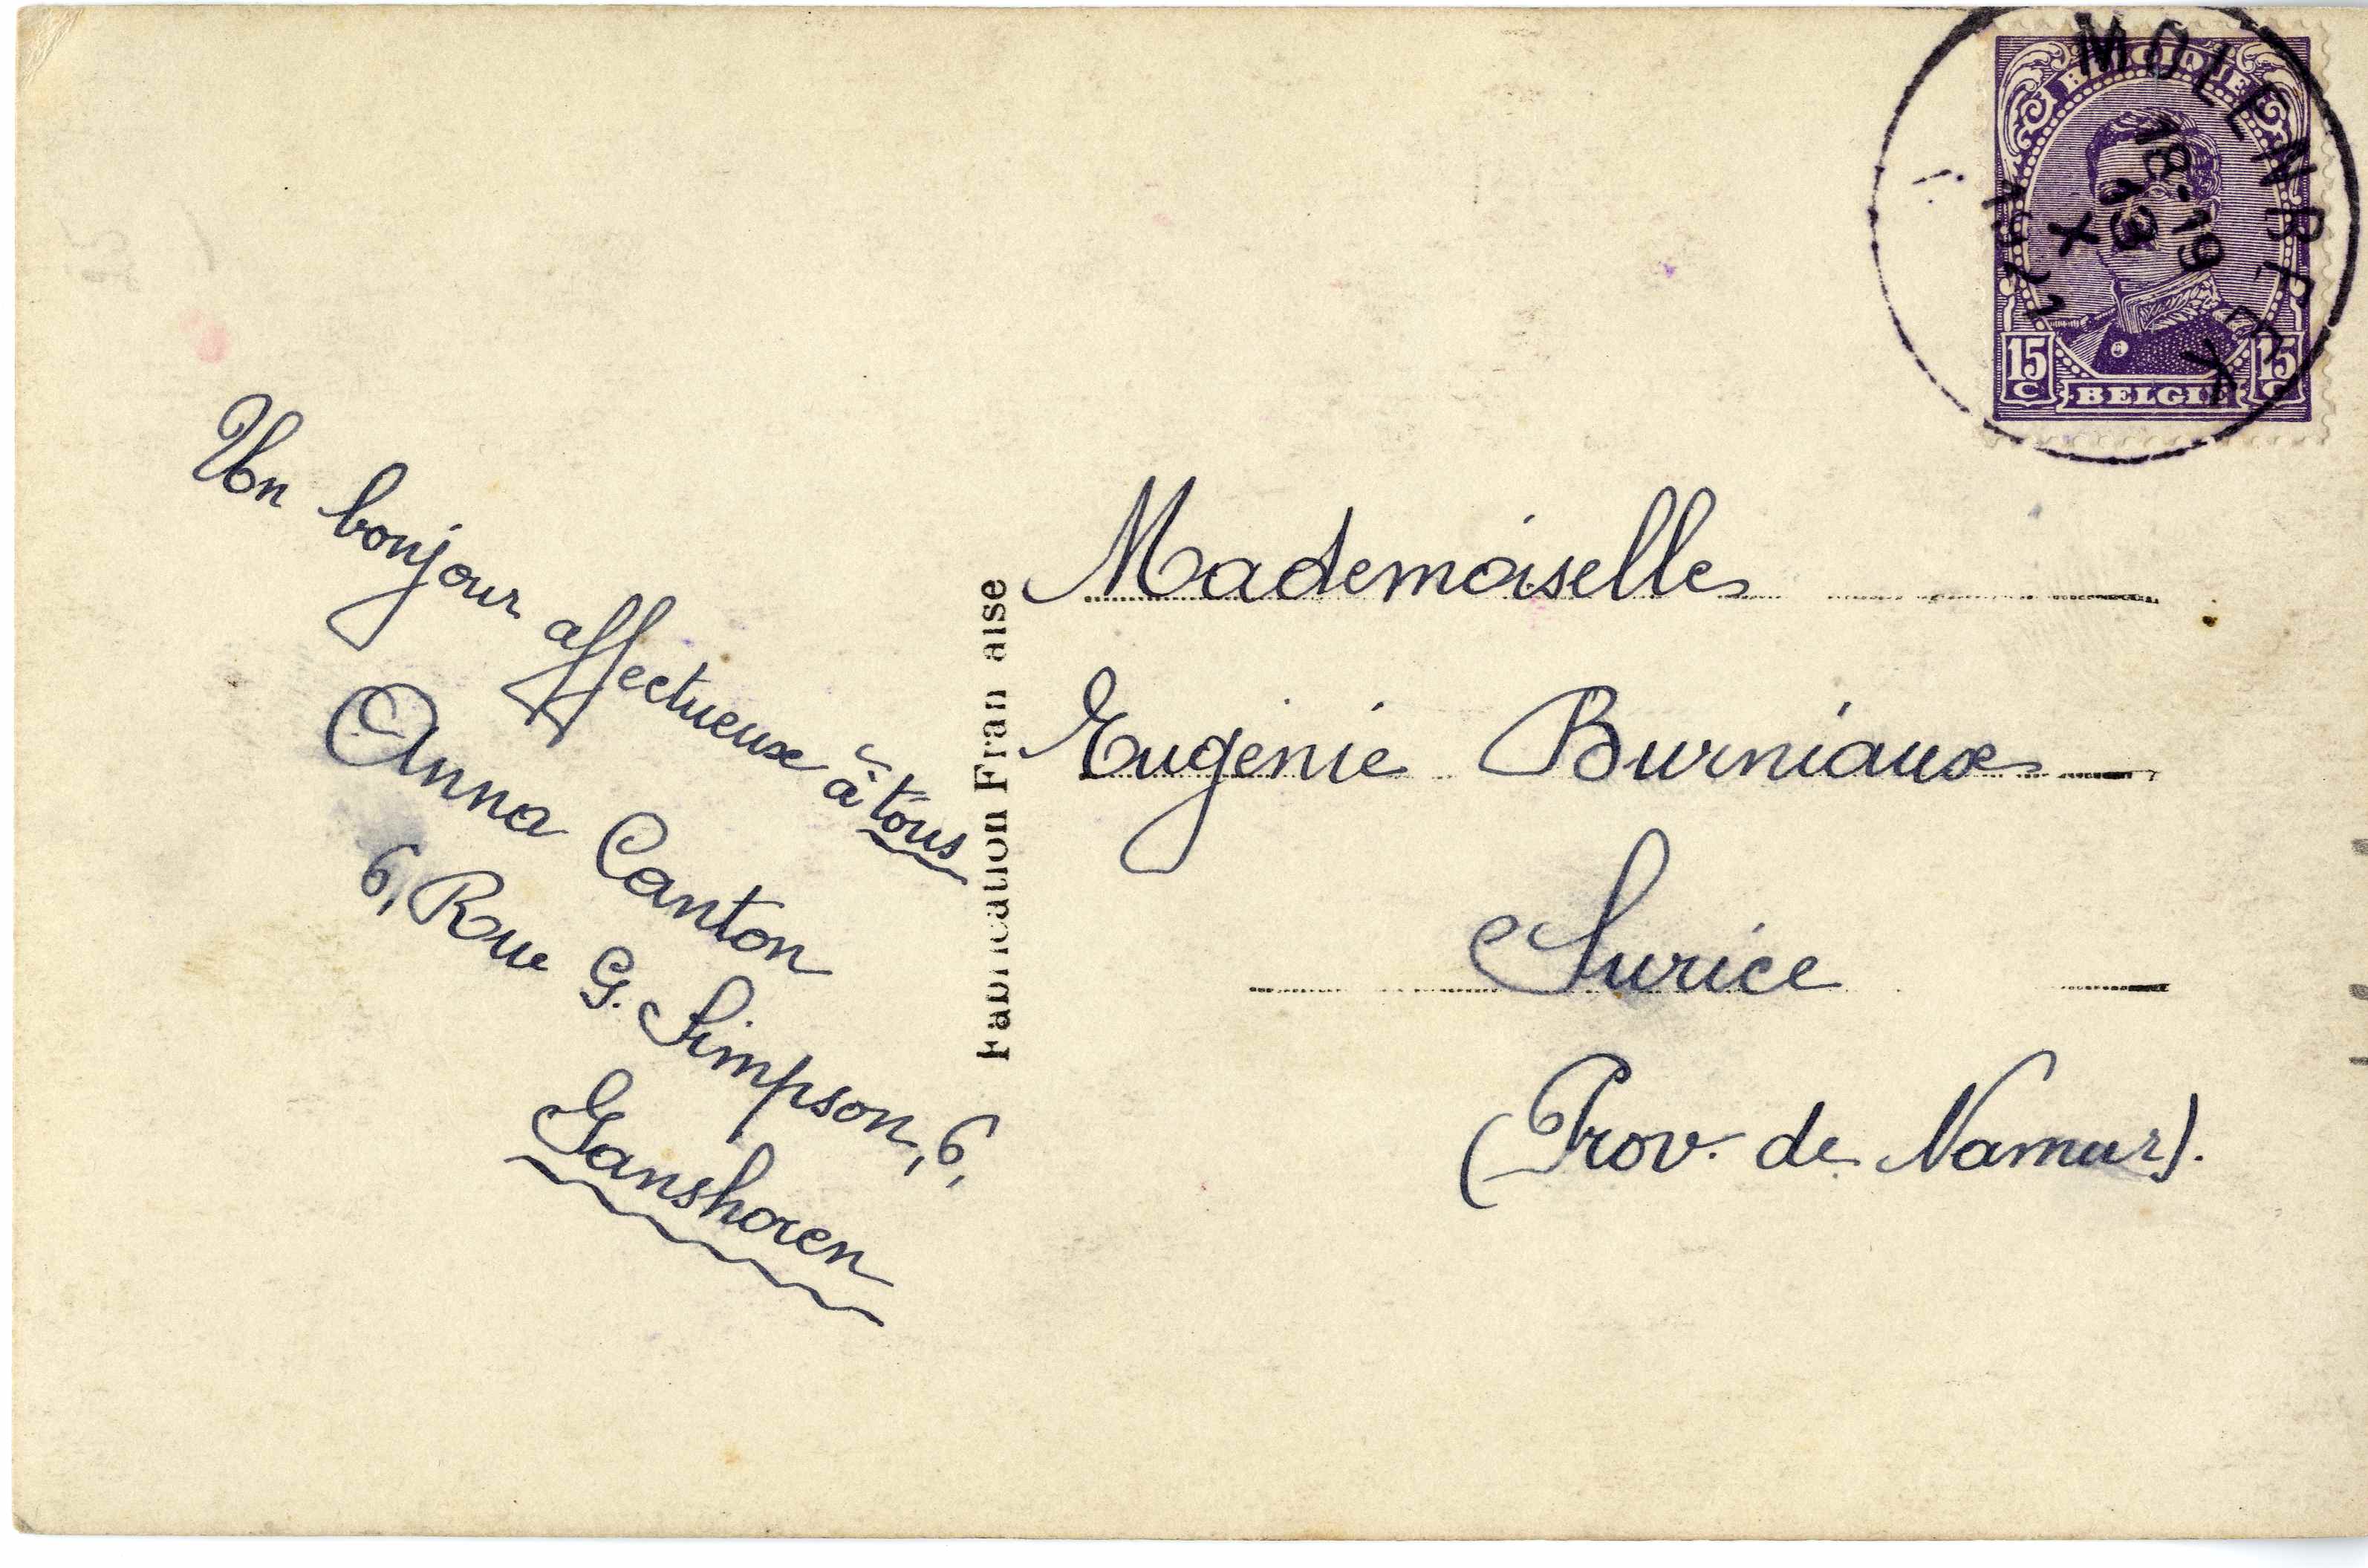 Un bonjour affectueux à tous
Anna Canton
6, Rue G. Simpson, 6,
Ganshoren
Fabrication Fran aise
Mademoiselle
Eugénie Burniaux
Surice
(Prov. de Namur).
BELGIQUE
15 C 15 C
BELGIË
MOLENBEEK
18-19
13
X
1921